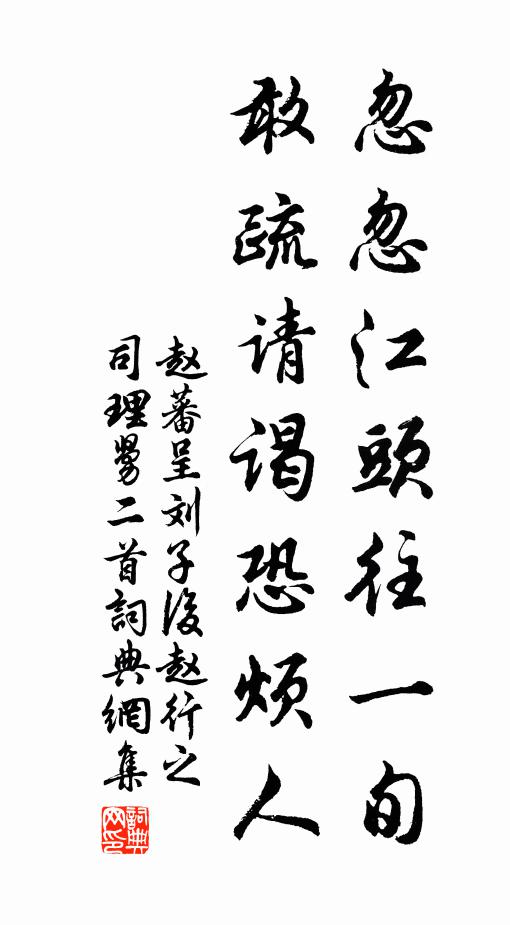 忽忽江頭往一旬
敢疏请谒恐烦人
赵蕃呈刘子後赵行之
司理舅二首詞典網集
詞典网印